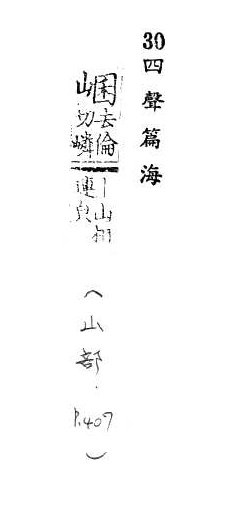 30四聲篇海
㟒
去倫
切嶙
丨山相
連皃
(山部.
P.407)